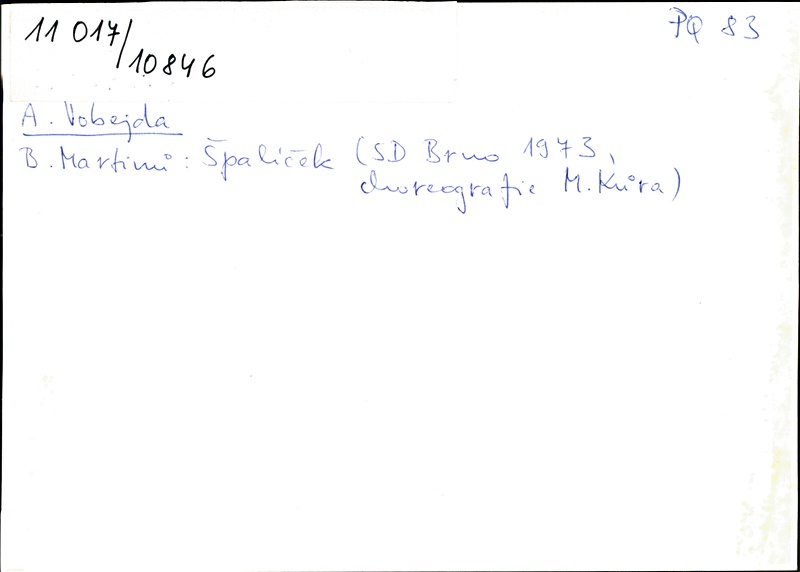 11 017/10846
PQ 83
A. Vobejda
B. Martinů: Špalíček (SD Brno 1973,
choreografie M. Kůra)